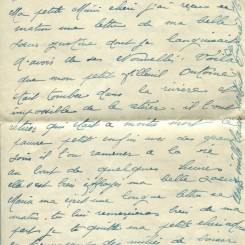 Ma petite Mimi chéri j'ai reçu ce
matin une lettre de ma belle
soeur dont je languissais
d'avoir de ses nouvelles. Voila
que mon petit filleul Antoine
était tombé dans la rivière et
impossible de le il l'ont
retiré qui était a moitié mort le
pauvre petit enfin avec des
soins il l'on ramener a la vie
au bout de quelques heures
elle est très ma belle soeur
Maria ma écrit une longue lettre ce
matin. tu lui remercieras bien de
part je te quitte ma petite chérie
de milliers de